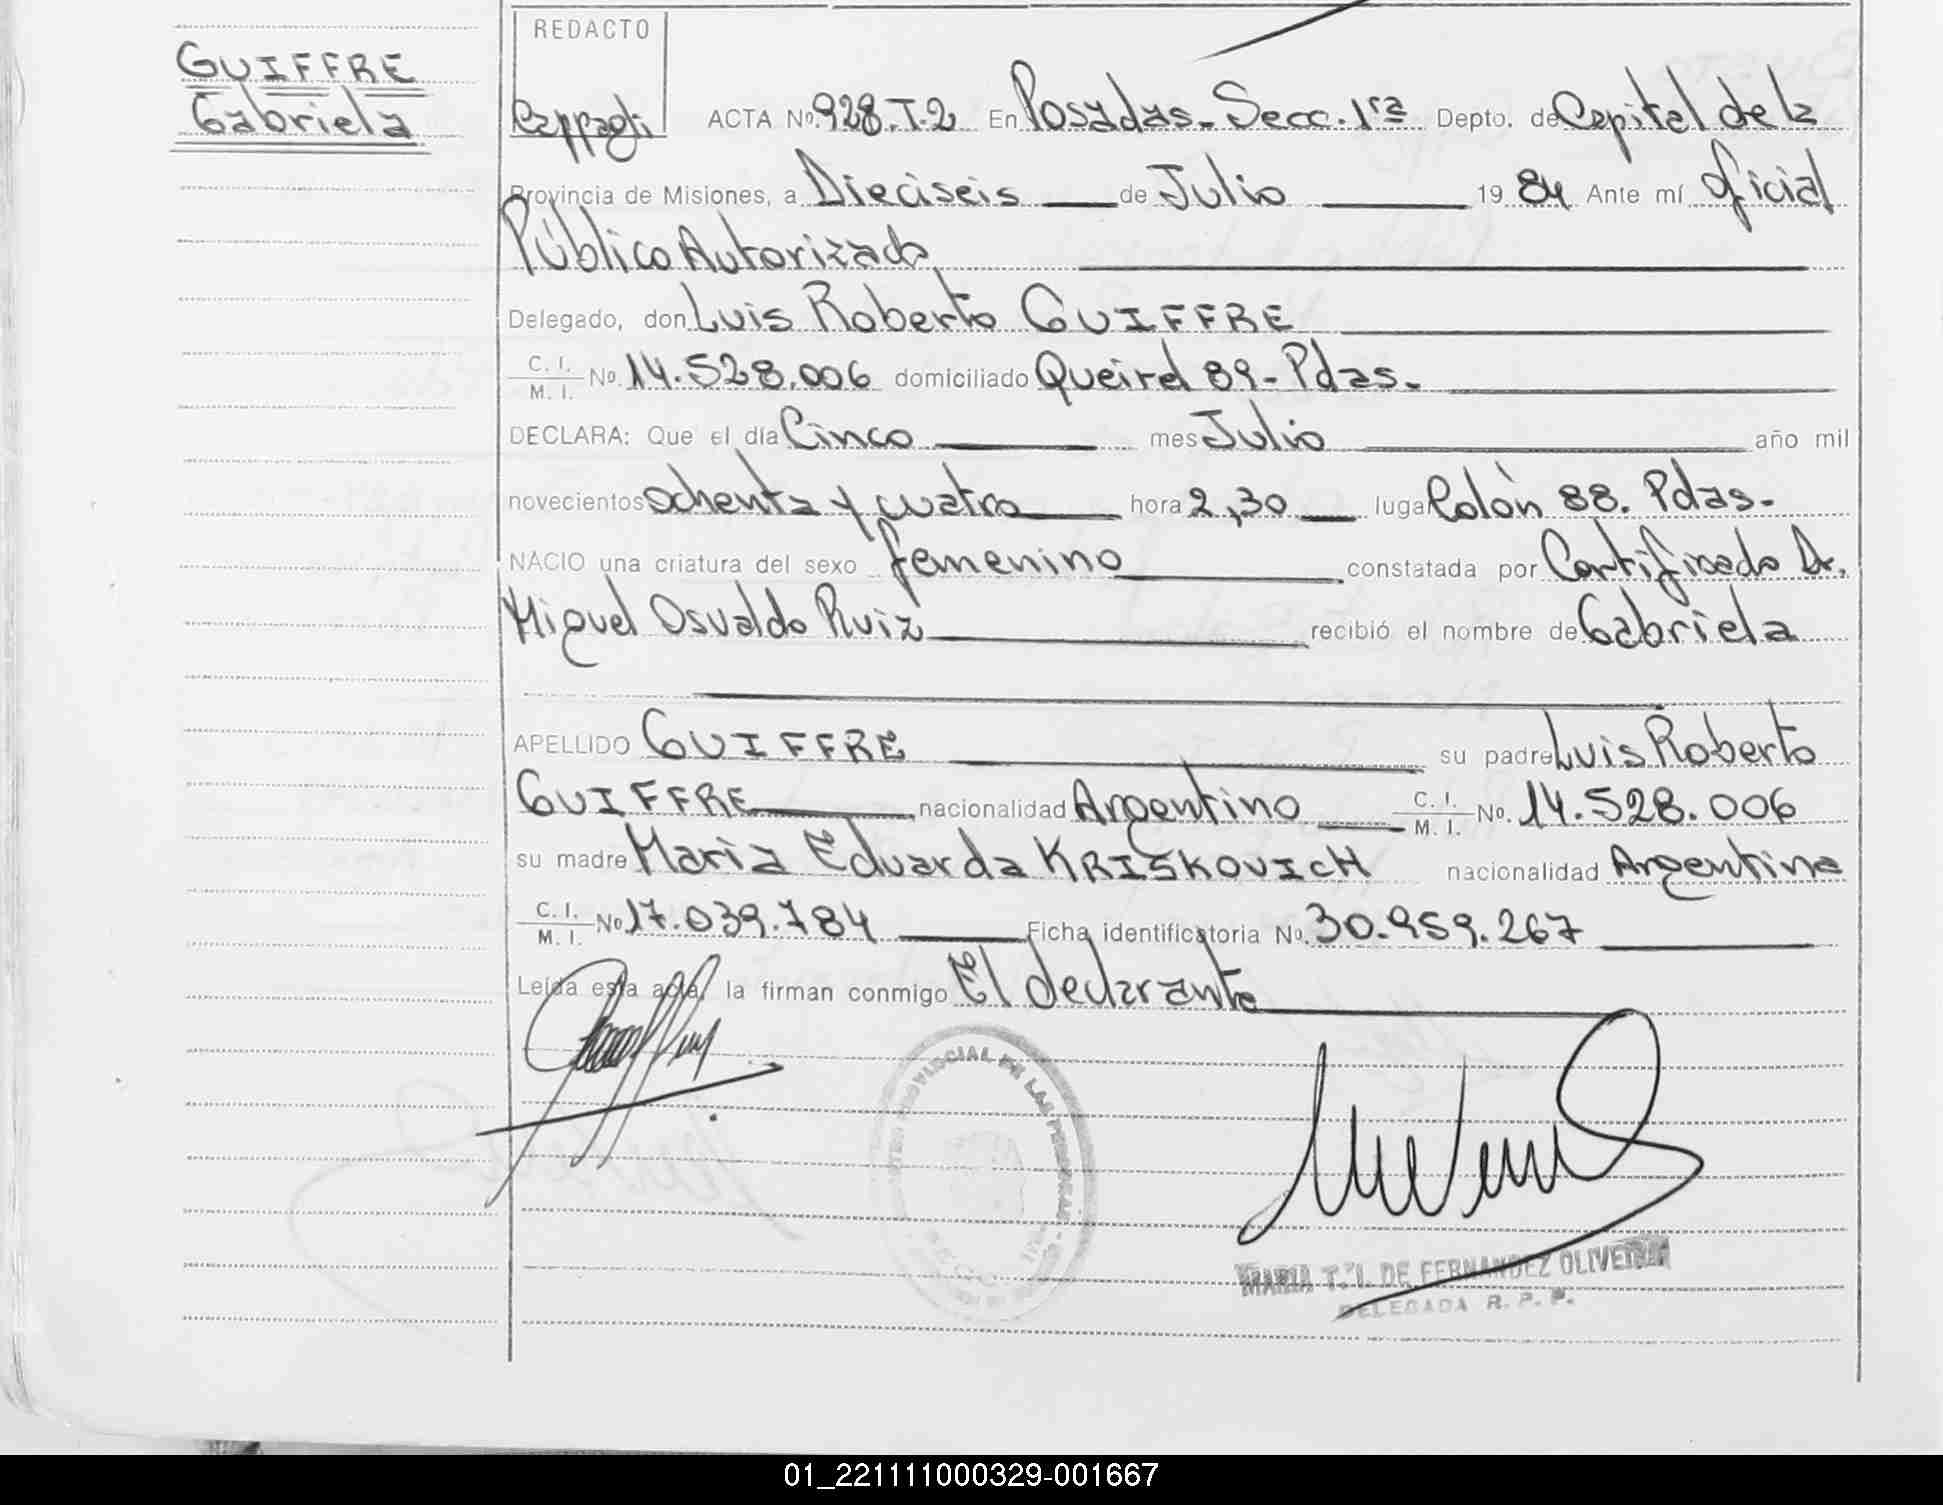 GUIFFRE
Gabriela
REDACTO
ACTA Nº 928.T.2 En Posadas-Secc. 1ra Depto. de Capital de la
Provincia de Misiones, a Dieciseis de Julio 1984 Ante mí Oficial
Público Autorizado
Delegado, don Luis Roberto GUIFFRE
C. I. / M. I. Nº 14.528.006 domiciliado Queirel 89- Pdas-
DECLARA: Que el día Cinco mes Julio año mil
novecientos ochenta y cuatro hora 2,30 lugar Colón 88. Pdas-
NACIO una criatura del sexo femenino constatada por Certificado Dr.
Miguel Osvaldo Ruiz recibió el nombre de Gabriela
APELLIDO GUIFFRE su padre Luis Roberto
GUIFFRE nacionalidad Argentino C. I. / M. I. Nº 14.528.006
su madre Maria Eduarda KRISKOVICH nacionalidad Argentina
C. I. / M. I. Nº 17.039.784 Ficha identificatoria Nº 30.959.267
Leída esta acta, la firman conmigo El declarante
PROVINCIAL DE LAS PERSONAS
SECC. 1ra
MARIA T. I. DE FERNANDEZ OLIVEIRA
DELEGADA R. P. P.
01_221111000329-001667